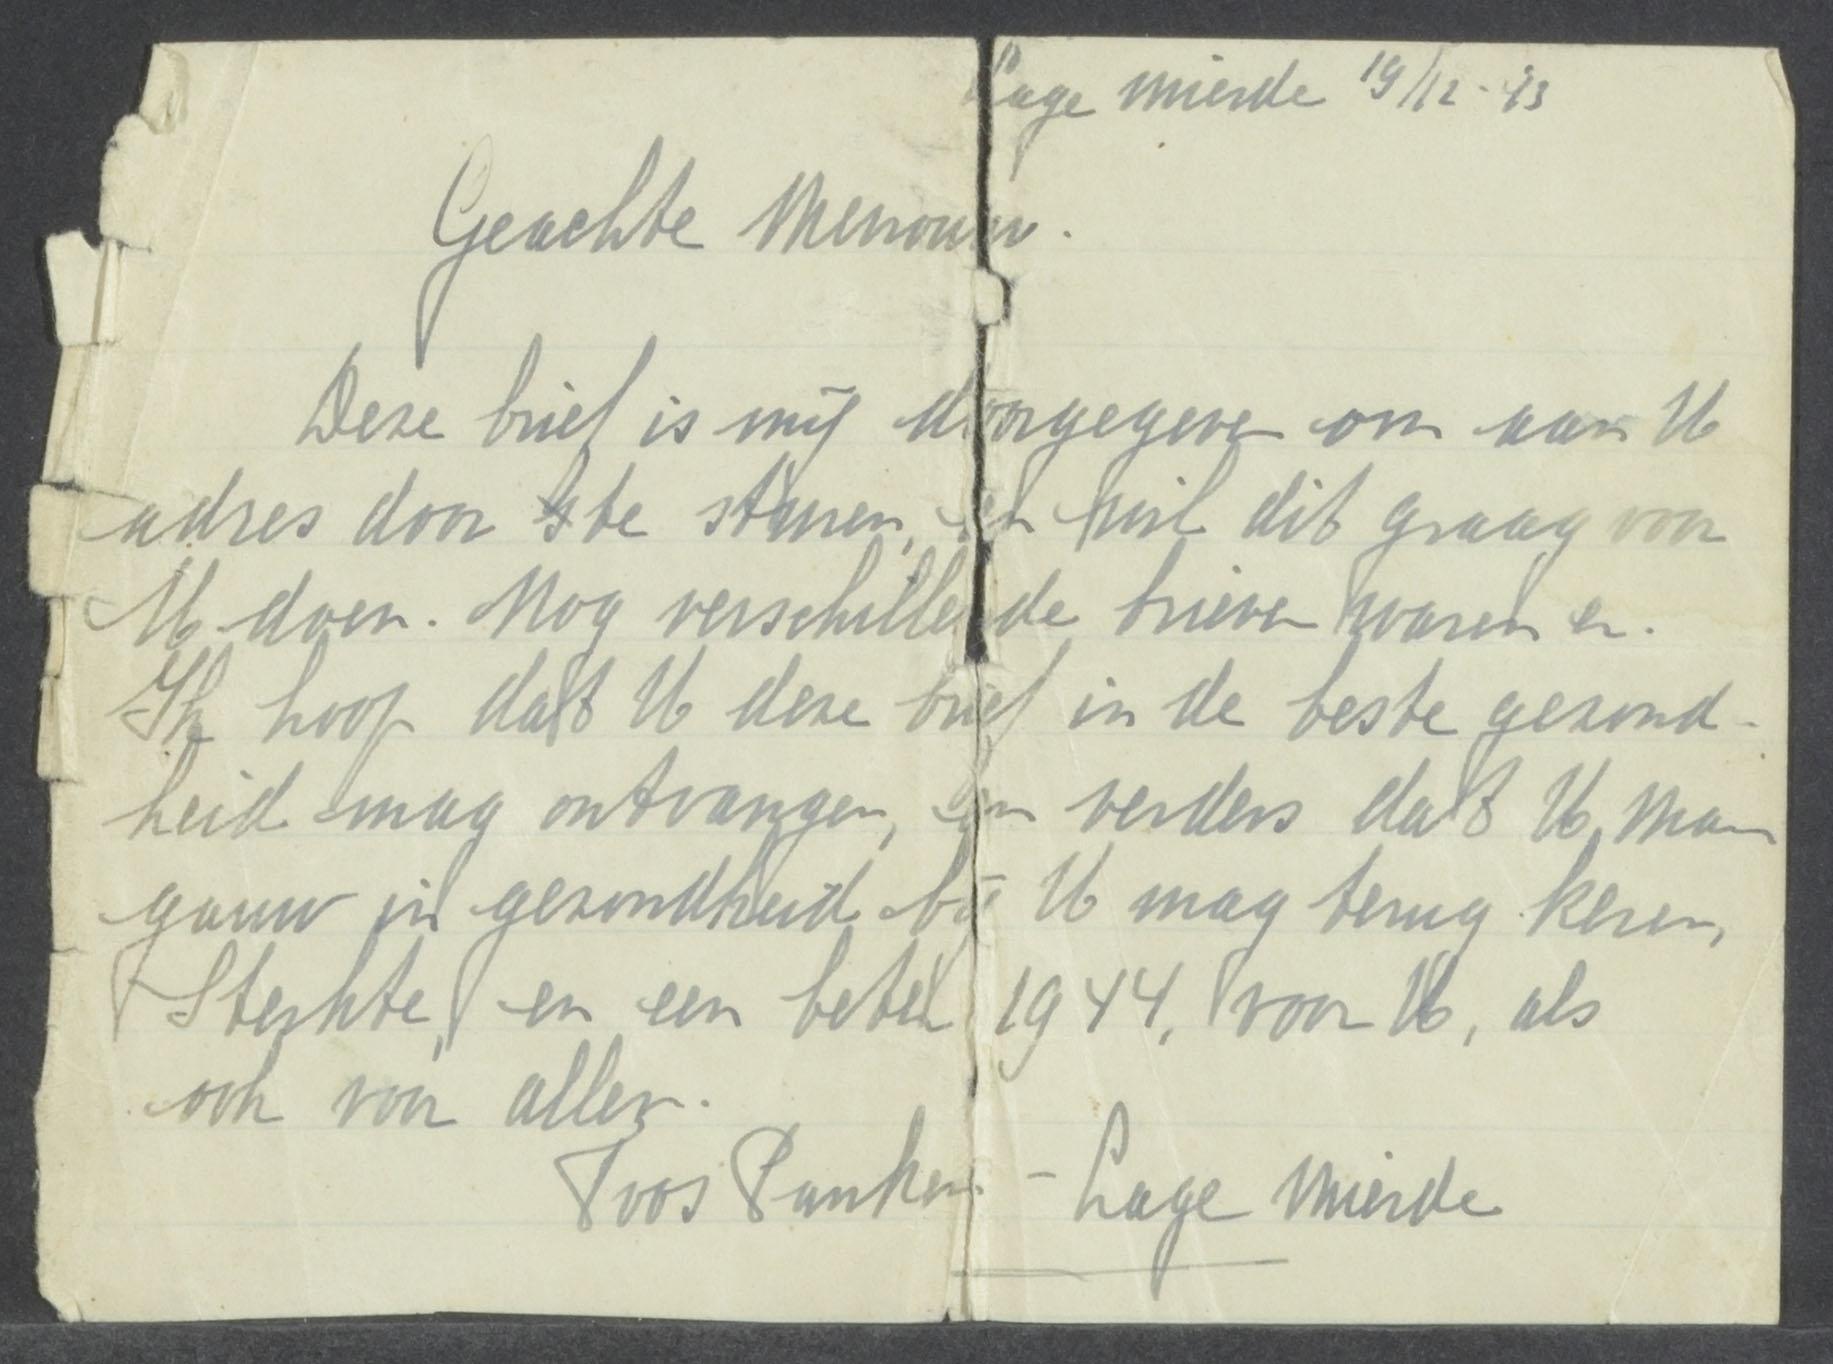 Lage Mierde 19/12-43
Geachte Mevrouw.
Deze brief is mij doorgegeven om aan U
adres door te sturen, en wil dit graag voor
U doen. Nog verschillende brieven waren er.
Ik hoop dat U deze brief in de beste gezond-
heid mag ontvangen, en verders dat U man
gauw in gezondheid bij U mag terug keren,
Sterkte, en een beter 1944, voor U, als
ook voor allen.
Toos Panken - Lage Mierde